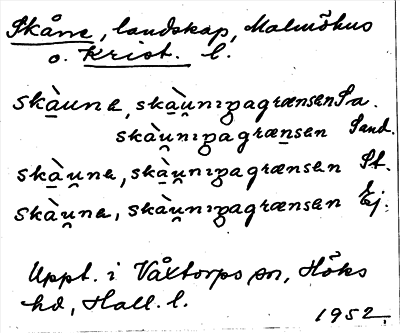 Skåne, landskap, Malmöhus
o. Krist. l.
skà̱u̯nə, skà̱u̯nıŋagrænsən Sa.
skà̱u̯nıŋagræn̠sən Sand.
skà̱u̯nə, skà̱u̯nıŋagrænsən St.
skà̱u̯nə, skà̱u̯nıŋagrænsən Ej.
Uppt. i Våxtorps sn, Höks
hd, Hall. l.
1952.